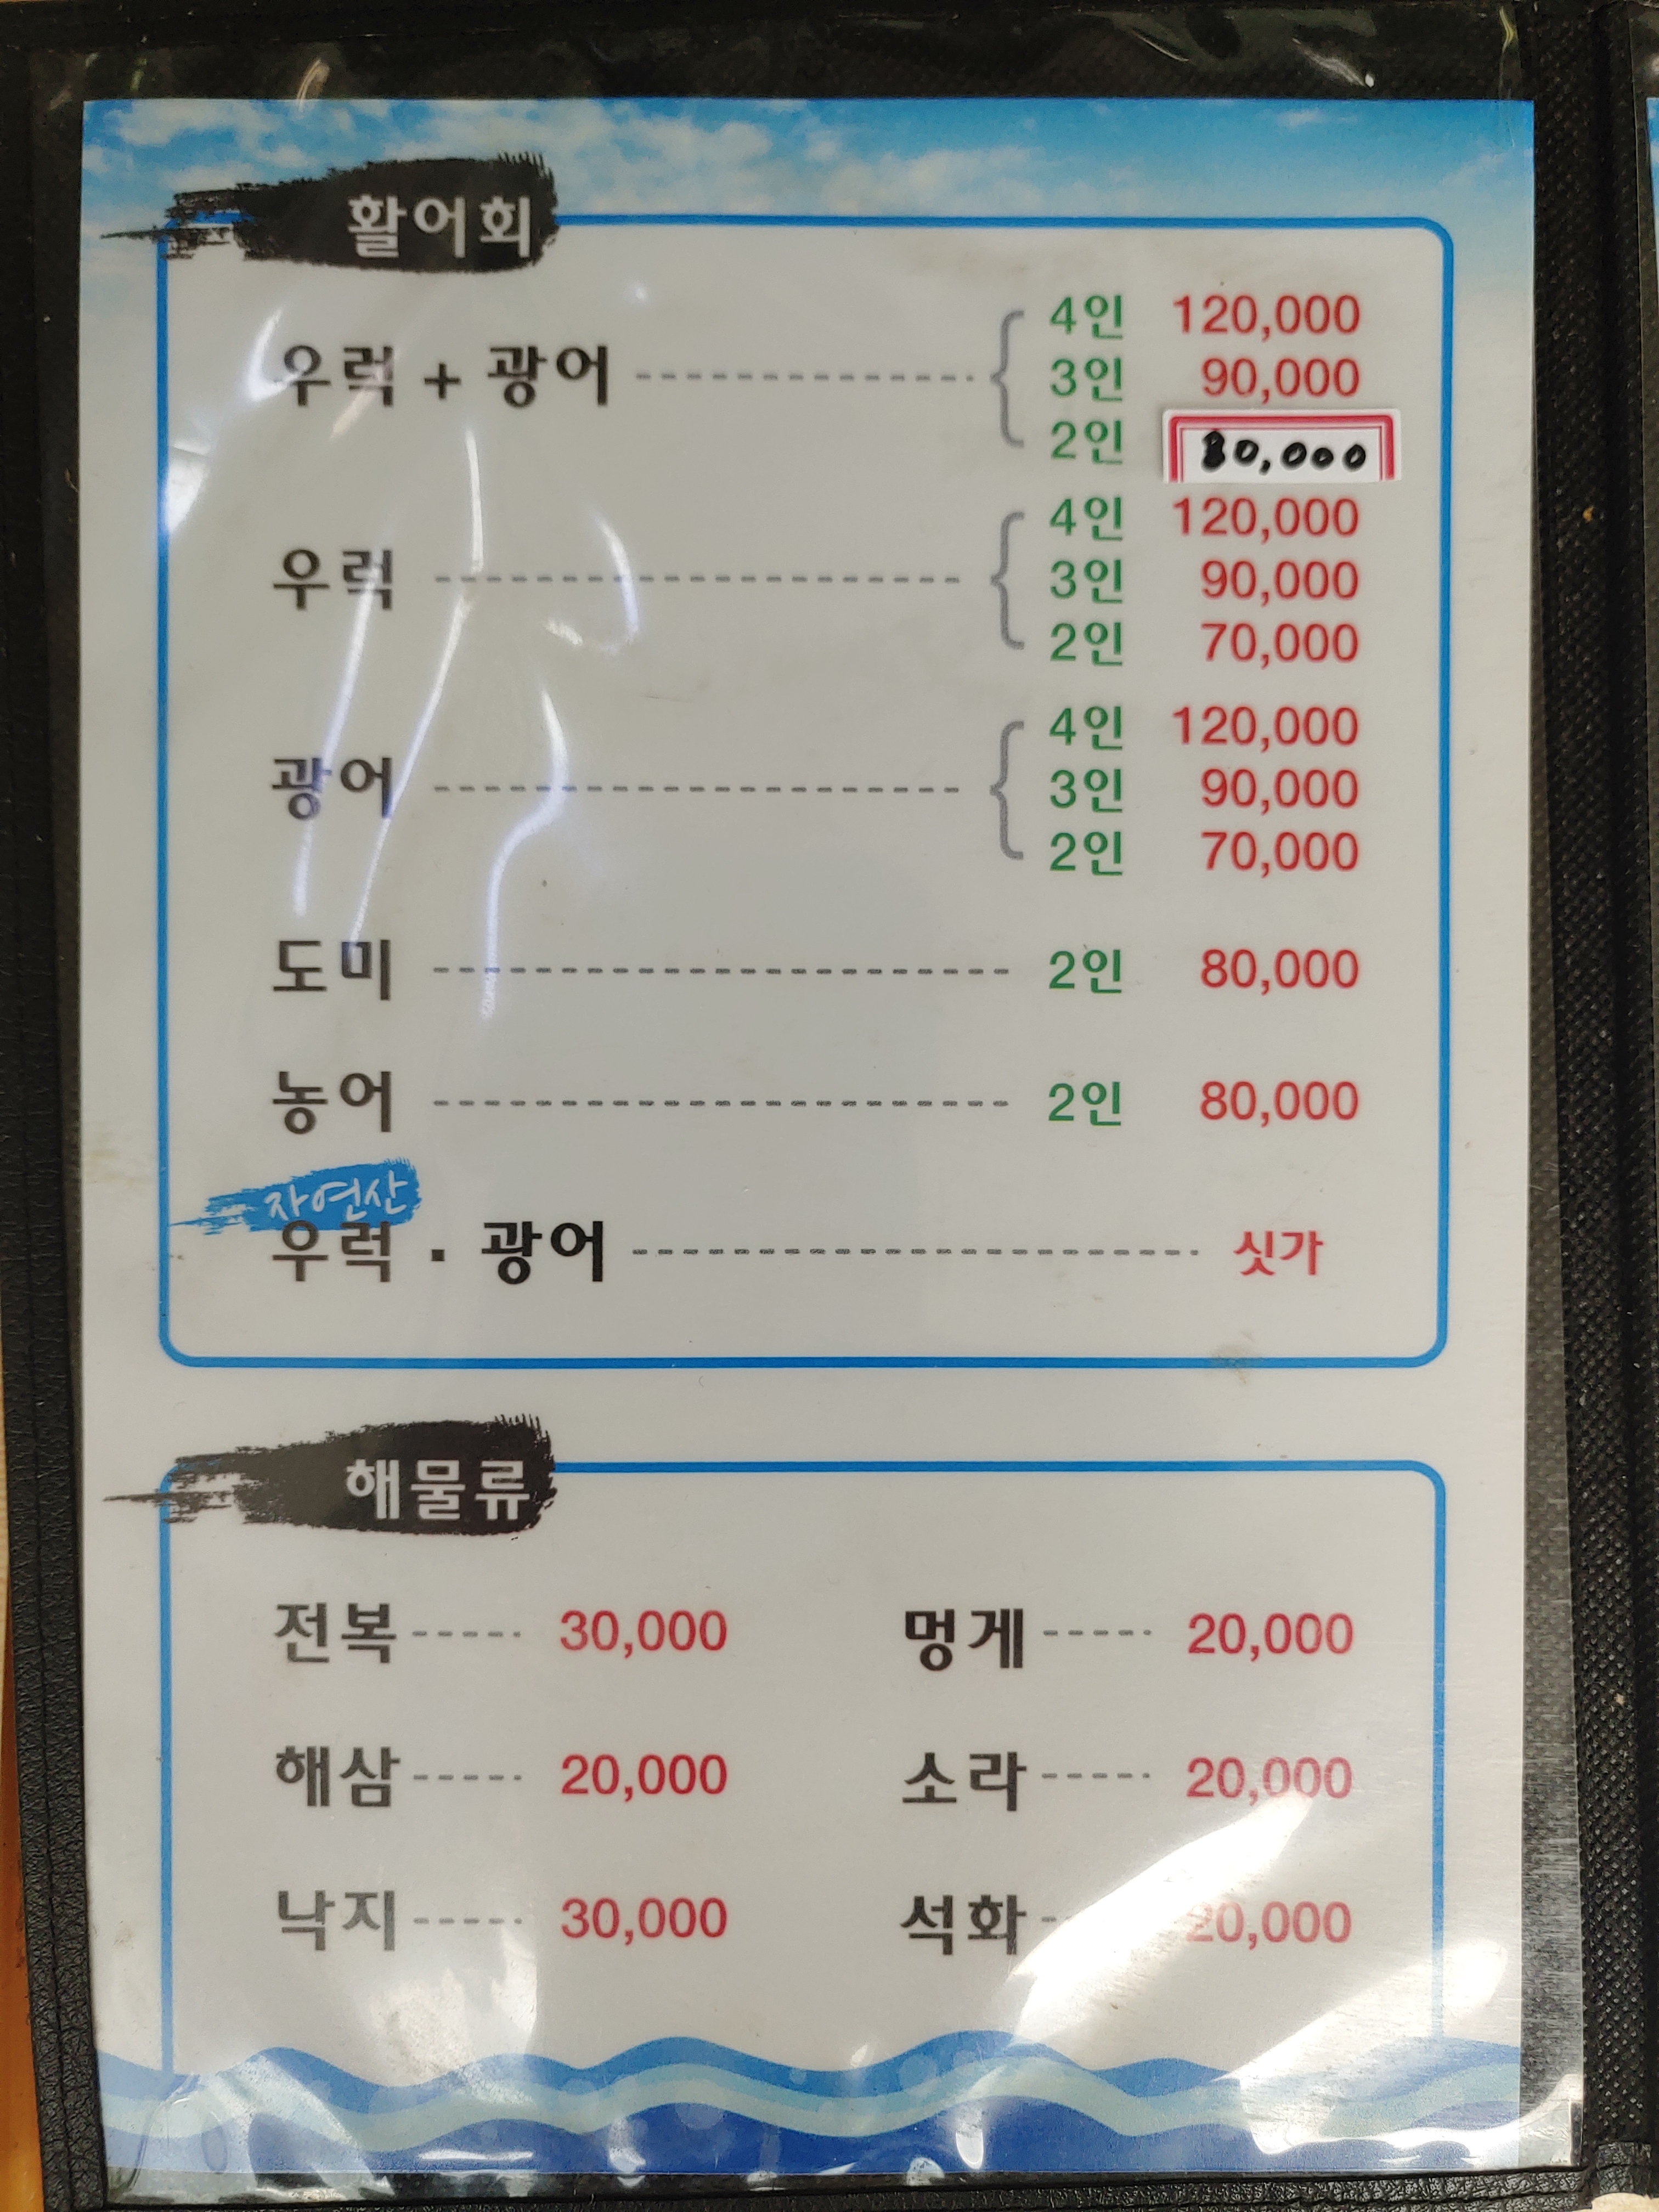 활어회
우럭 + 광어 4인 120,000
3인 90,000
2인 80,000
우럭 4인 120,000
3인 90,000
2인 70,000
광어 4인 120,000
3인 90,000
2인 70,000
도미 2인 80,000
농어 2인 80,000
자연산
우럭 · 광어 싯가
해물류
전복 30,000 멍게 20,000
해삼 20,000 소라 20,000
낙지 30,000 석화 20,000